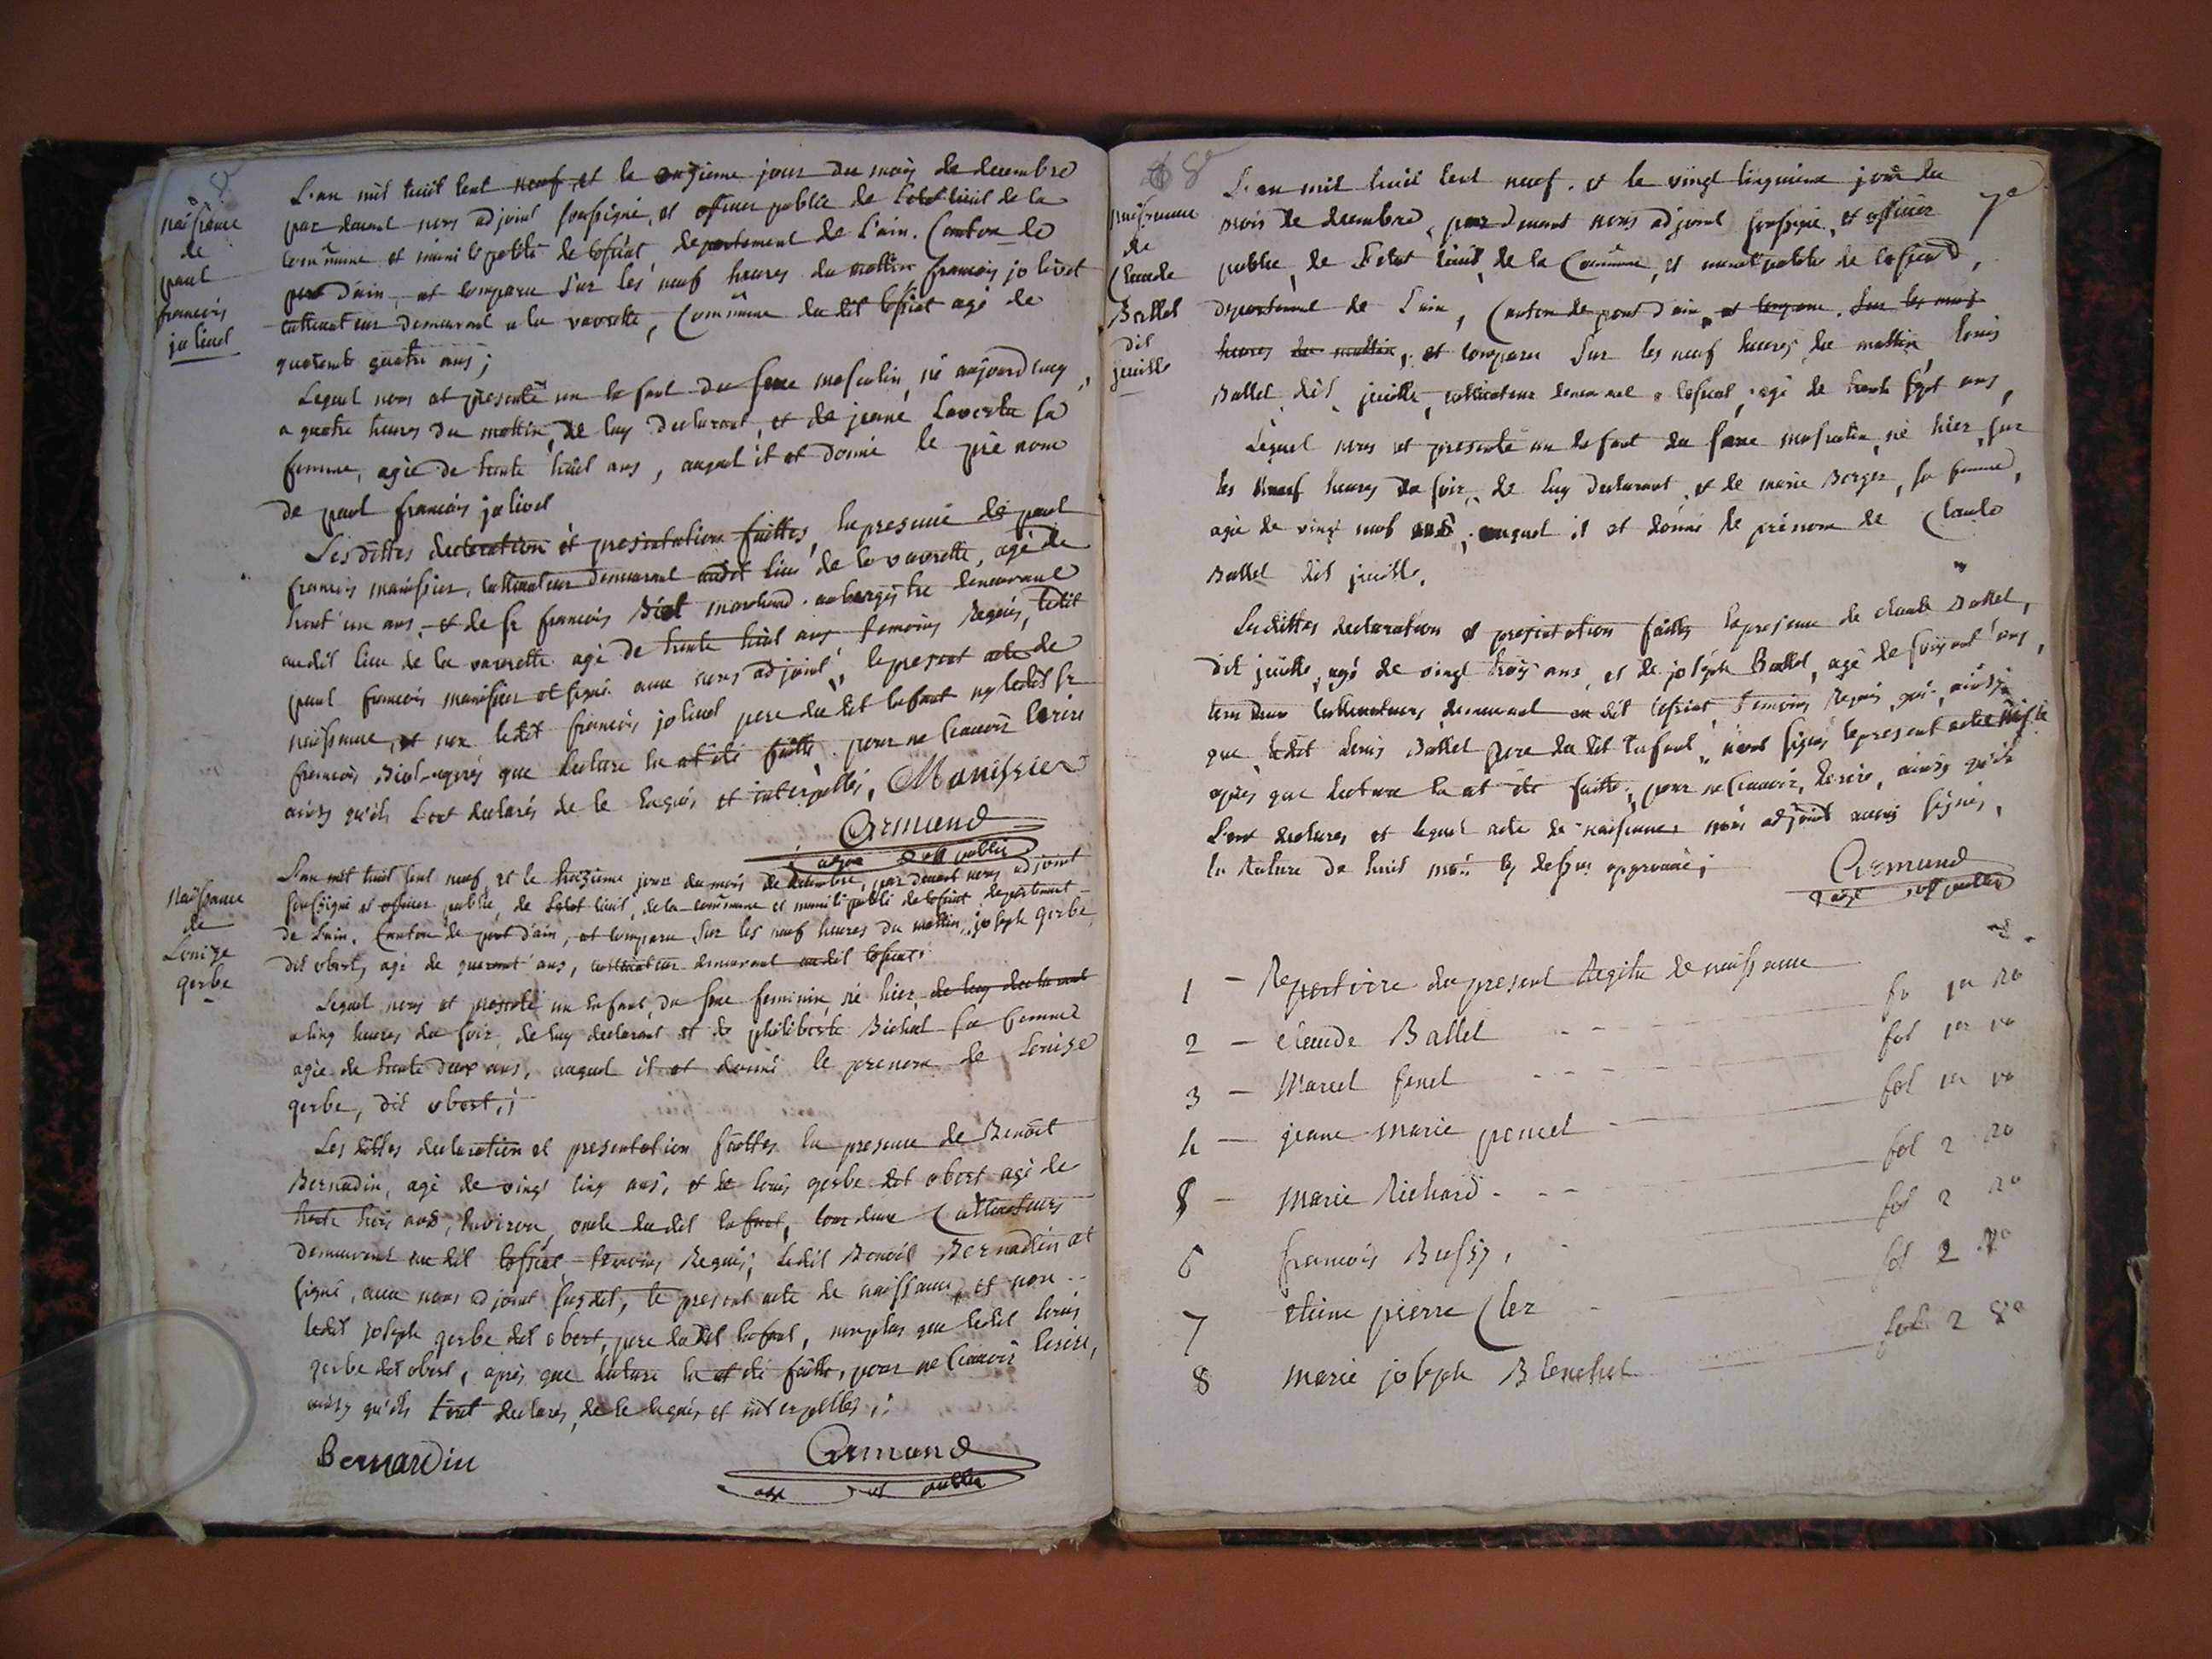 naissance
de
paul
francois
jolivet
L'an mil huit cent neuf, et le onzieme jour du mois de decembre
par devant nous adjoint soussigné, et officier public de l'etat civil de la
commune et municipalité de tossiat, departement de l'ain. Canton de
pont d'ain, et comparu sur les neuf heures du mattin francois jolivet
cultivateur demeurant a la vavrette, Commune du dit tossiat agé de
quarente quatre ans;
Lequel nous at presenté un enfant du sexe masculin, né aujourd'huy,
a quatre heures du mattin, de luy declarant, et de jeane sa
femme, agée de trente huit ans, auquel il at donné le prénom
de paul francois jolivet
Lesdittes declaration et presentation faittes, en presence de paul
francois manissier, cultivateur demeurant audit lieu de la vavrette, agé de
trent'un ans, et de sr francois Biol marchand aubergiste demeurant
audit lieu de la vavrette agé de trente huit ans temoins Requis, ledit
paul francois manissier at signé avec nous adjoint, le present acte de
naissance, et non ledit francois jolivet pere du dit enfant ny ledit sr
francois Biol après que lecture en at été faitte, pour ne scavoir Ecrire
ainsy qu'ils l'ont declarés de ce Enquis et interpellés. Manissier
Armand
adjoint off public
Naissance
de
Louize
gerbe
L'an mil huit cent neuf, et le treizieme jour du mois de decembre, par devant nous adjoint
soussigné et officier public, de l'etat civil, de la commune et municipalité de tossiat departement
de l'ain. Canton de pont d'ain, et comparu sur les neuf heures du mattin, joseph gerbe
dit obert, agé de quarant'ans, cultivateur demeurant audit tossiat;
Lequel nous at presenté un enfant, du sexe feminin né hier de luy declarant
a cinq heures du soir, de luy declarant et de philiberte sa femme
agée de trente deux ans, auquel il at donné le prenom de Louise
gerbe, dit obert;
Les dittes declaration et presentation faittes en presence de Benoit
Bernadin, agé de vingt cinq ans, et de louis gerbe dit obert agé de
trente trois ans, environ, oncle du dit enfant, tous deux Cultivateurs
demeurant audit tossiat temoins Requis; ledit Benoit Bernadin at
signé, avec nous adjoint susdit, le present acte de naissance, et non
ledit joseph gerbe dit obert, pere du dit enfant, non plus que ledit louis
gerbe dit obert, après que lecture en at été faitte, pour ne scavoir Ecrire,
ainsy qu'ils l'ont declarés, de ce enquis et interpellés;
Bernardin
Armand
adjt off public
naissance
de
Claude
Ballet
dit
juille
L'an mil huit cent neuf. et le vingt cinquieme jour du
mois de decembre, par devant nous adjoint soussigné, et officier
public, de l'etat civil, de la Commune, et municipalité de tossiat,
departement de l'ain, Canton de pont d'ain, et comparu sur les neuf
heures du mattin, et comparu sur les neuf heures du mattin, louis
Ballet dit juille, cultivateur demeurant a tossiat, agé de trente sept ans,
Lequel nous at presenté un enfant du sexe masculin, né hier, sur
les neuf heures du soir, de luy declarant, et de marie Borger, sa femme,
agée de vingt neuf ans, auquel il at donné le prénom de Claude
Ballet dit juille.
Lesdittes declaration et presentation faittes en presence de claude Ballet,
dit juille, agé de vingt trois ans, et de joseph Ballet, agé de soixant'ans,
tous deux cultivateurs, demeurant au dit tossiat, temoins Requis, qui, ainsy
que ledit Louis Ballet pere du dit enfant, n'ont signés le present acte
après que lecture en at été faitte, pour ne scavoir, Ecrire, ainsy qu'ils
l'ont declarés, et lequel acte de naissance nous adjoint avons signés,
la Rature de huit mots cy dessus approuvée;
Armand
adjt off public
1 — Repertoire du present Registre de naissance
2 — Claude Ballet fo 1er Ro
3 — Marcel fenet fol 1er vo
4 — jeane marie poncet fol 1er vo
5 — Marie Richard fol 2 Ro
6 francois Bussy, fol 2 Ro
7 etiene pierre Clez fol 2 Ro
8 Marie joseph Blenchet fol 2 vo